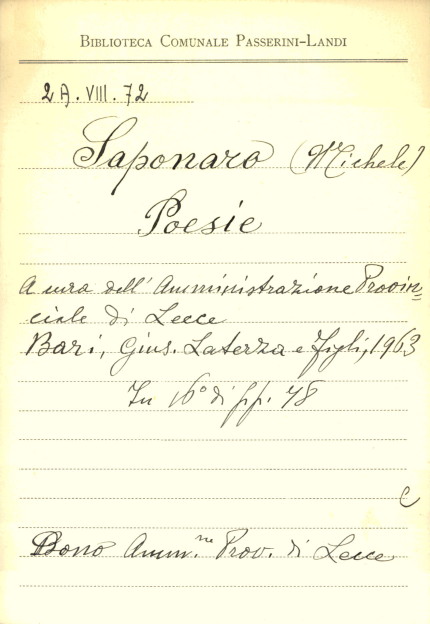 BIBLIOTECA COMUNALE PASSERINI-LANDI
2 A. VIII. 72
Saponaro (Michele)
Poesie
A cura dell' Amministrazione Provin=
ciale di Lecce
Bari, Gius. Laterza e Figli, 1963
In 16° di pp. 78
C
Dono Amm.ne Prov. di Lecce